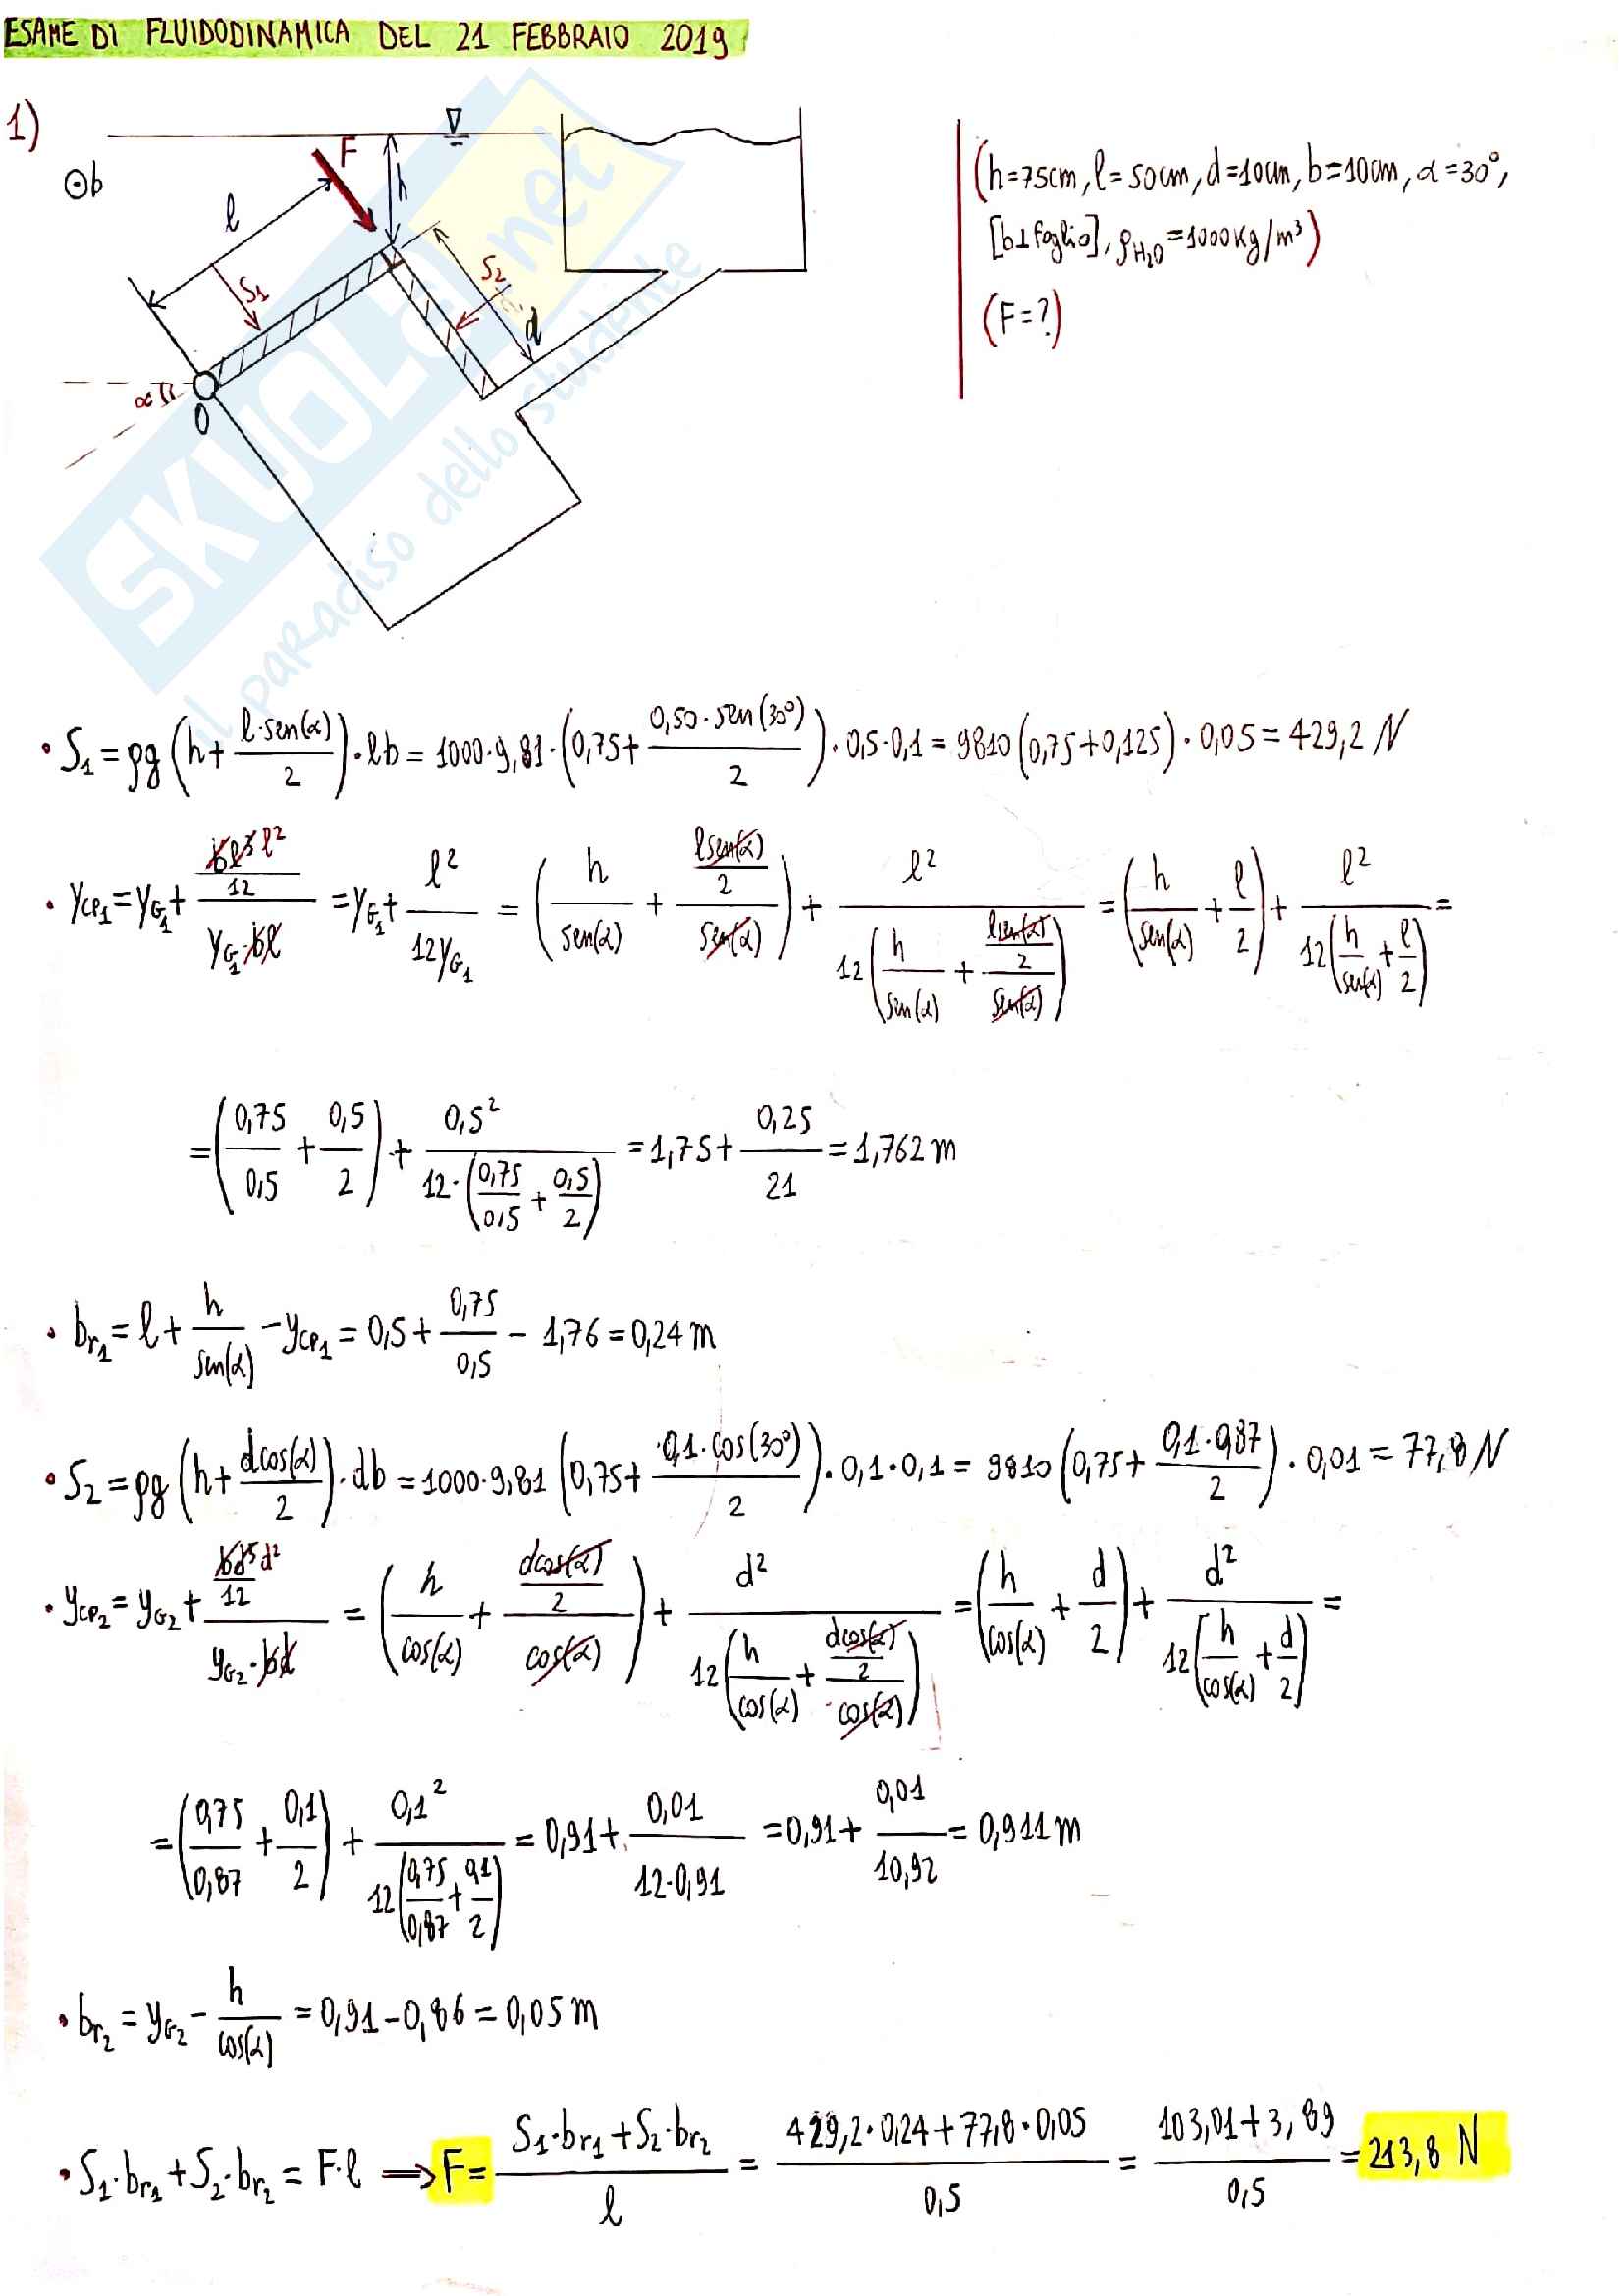 ESAME DI FLUIDODINAMICA DEL 21 FEBBRAIO 2019
1)
⊙b
F
h
l
S₁
S₂
d
α
O
(h=75cm, l=50cm, d=10cm, b=10cm, α=30°,
[b⊥foglio], ρH₂O=1000Kg/m³)
(F=?)
SKUOLA.net
il paradiso dello studente
• S₁ = ρg (h + l·sen(α)/2)·lb = 1000·9,81·(0,75 + 0,50·sen(30°)/2)·0,5·0,1 = 9810 (0,75+0,125)·0,05 = 429,2 N
• yCP₁ = yG₁ + (bl³ l²/12)/(yG₁·bl) = yG₁ + l²/(12yG₁) = (h/sen(α) + (lsen(α)/2)/sen(α)) + l²/(12(h/sen(α) + (lsen(α)/2)/sen(α))) = (h/sen(α) + l/2) + l²/(12(h/sen(α) + l/2)) =
= (0,75/0,5 + 0,5/2) + 0,5²/(12·(0,75/0,5 + 0,5/2)) = 1,75 + 0,25/21 = 1,762 m
• br₁ = l + h/sen(α) − yCP₁ = 0,5 + 0,75/0,5 − 1,76 = 0,24 m
• S₂ = ρg (h + dcos(α)/2)·db = 1000·9,81 (0,75 + 0,1·cos(30°)/2)·0,1·0,1 = 9810 (0,75 + 0,1·0,87/2)·0,01 = 77,8 N
• yCP₂ = yG₂ + (bd³ d²/12)/(yG₂·bd) = (h/cos(α) + (dcos(α)/2)/cos(α)) + d²/(12(h/cos(α) + (dcos(α)/2)/cos(α))) = (h/cos(α) + d/2) + d²/(12(h/cos(α) + d/2)) =
= (0,75/0,87 + 0,1/2) + 0,1²/(12(0,75/0,87 + 0,1/2)) = 0,91 + 0,01/(12·0,91) = 0,91 + 0,01/10,92 = 0,911 m
• br₂ = yG₂ − h/cos(α) = 0,91 − 0,86 = 0,05 m
• S₁·br₁ + S₂·br₂ = F·l ⟹ F = (S₁·br₁ + S₂·br₂)/l = (429,2·0,24 + 77,8·0,05)/0,5 = (103,01 + 3,89)/0,5 = 213,8 N